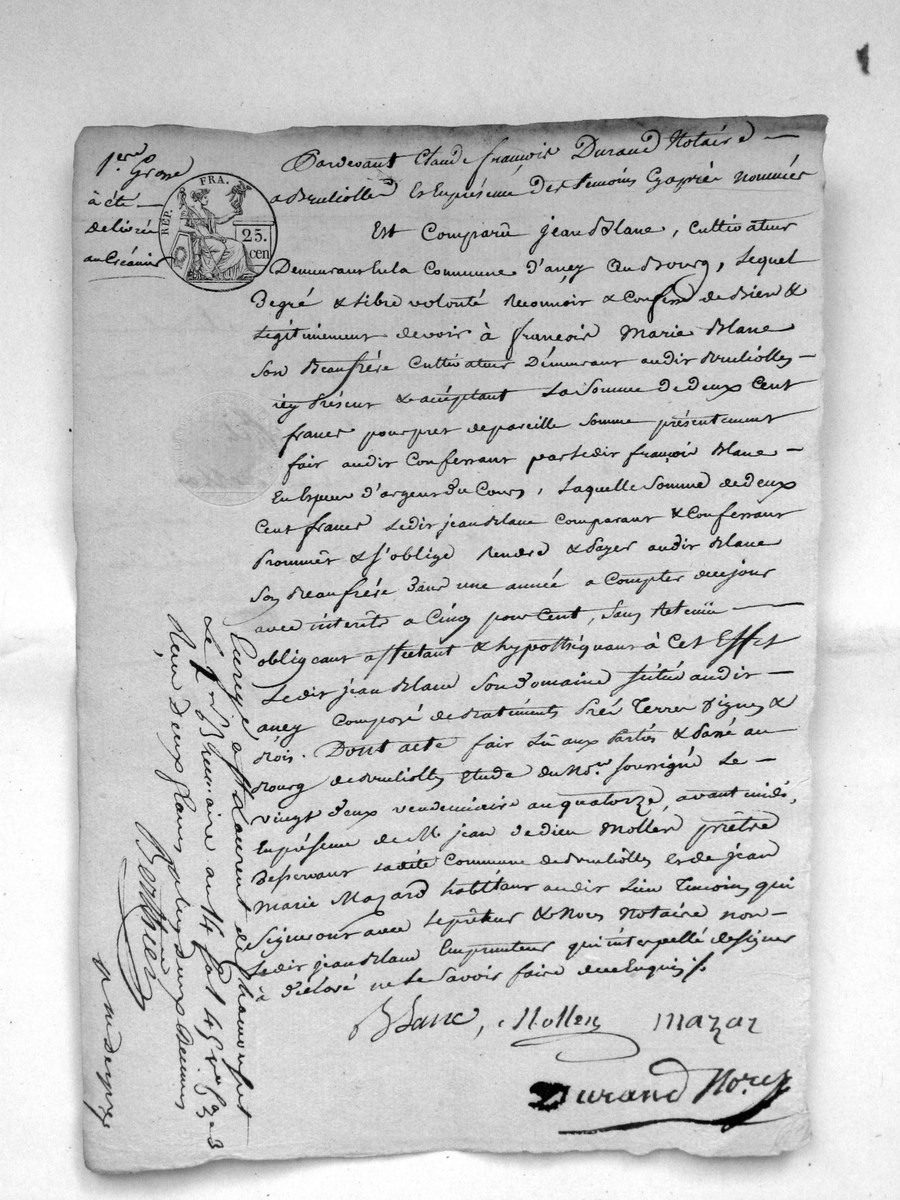 1.ere Grosse
à été
delivrée
au Créancier
REP. FRA.
25.
cen
Pardevant Claude françois Durand Notaire
a Brulliolles et Enprésence des temoins Caprés nommés
Est Comparû jean Blanc, Cultivateur
Demeurant En la Commune d'ancy au Bourg, Lequel
De gré & Libre volonté Reconnoit & Confesse de Bien &
Légitimement devoir à françois Marie Blanc
son Beaufrére Cultivateur Démeurant audit Brulliolles
icy Présent & acéptant La Somme de deux Cent
francs pour pret de pareille Somme présentement
fait audit Confessant par Ledit françois Blanc
En Espece d'argent du Cours, Laquelle Somme de deux
Cent francs Ledit jean Blanc Comparant & Confessant
Prommet & s'oblige Rendre & Payer audit Blanc
Son Beaufrére dans une année a Compter de ce jour
avec intérêts a Cinq pour Cent, Sans Retenüe
obligeant affectant & hypothéquant à Cet Effet
Ledit jean Blanc Son Domaine Situé audit
ancy Composé de Batiments Prés Terres Vignes &
Bois. Dont acte fait Lû aux Parties & Passé au
Bourg de Brulliolles Etude du No.re Soussigné Le
vingt deux vendemiaire an quatorze, avant midi,
En présence de M. jean de dieu Mollen prêtre
Desservant Ladite Commune de Brulliolles et de jean
Marie Mazard habitant audit Lieu Temoins qui
Signeront avec Le prêteur & Nous Notaire non
Ledit jean Blanc Emprunteur qui interpellé de signer
a déclaré ne Le Savoir faire de ce Enquis /.
Blanc, Mollen Mazar
Durand No.re
Enregé a St Laurent de Chamousset
Le 1.er Brumaire an 14 fol. 45 v.o C. 3
Reçu Deux francs
Berthier